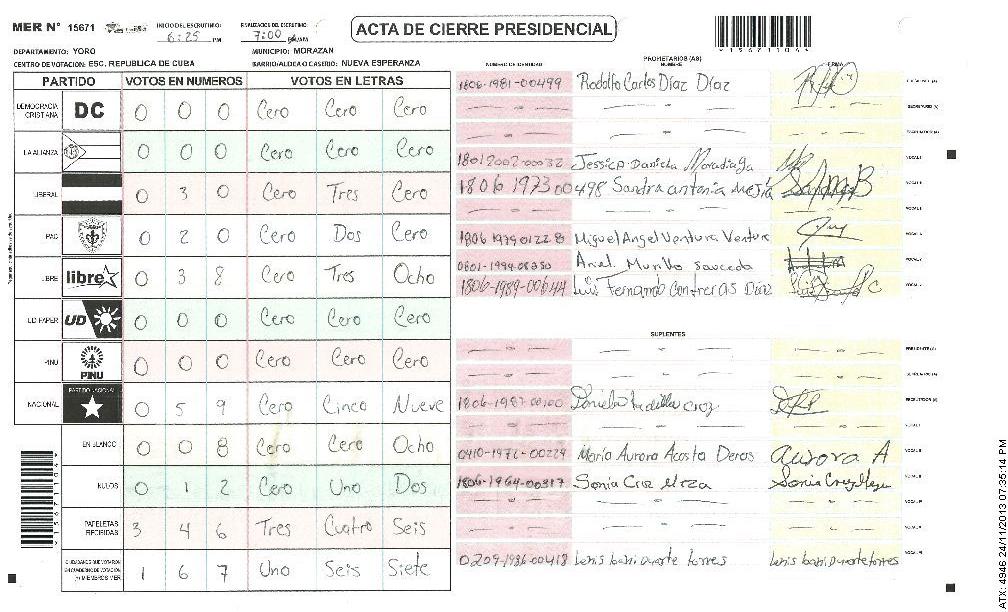 MER N° 15671
INICIO DEL ESCRUTINIO: 6:25 PM
FINALIZACION DEL ESCRUTINIO: 7:00 AM/PM
ACTA DE CIERRE PRESIDENCIAL
DEPARTAMENTO: YORO
MUNICIPIO: MORAZAN
CENTRO DE VOTACION: ESC. REPUBLICA DE CUBA
BARRIO/ALDEA O CASERIO: NUEVA ESPERANZA
PARTIDO VOTOS EN NUMEROS VOTOS EN LETRAS
DEMOCRACIA CRISTIANA DC 0 0 0 Cero Cero Cero
LA ALIANZA 0 0 0 Cero Cero Cero
LIBERAL 0 3 0 Cero Tres Cero
PAC 0 2 0 Cero Dos Cero
LIBRE libre 0 3 8 Cero Tres Ocho
UD FAPER UD 0 0 0 Cero Cero Cero
PINU PINU 0 0 0 Cero Cero Cero
NACIONAL PARTIDO NACIONAL 0 5 9 Cero Cinco Nueve
EN BLANCO 0 0 8 Cero Cero Ocho
NULOS 0 1 2 Cero Uno Dos
PAPELETAS RECIBIDAS 3 4 6 Tres Cuatro Seis
CIUDADANOS QUE VOTARON EN CUADERNO DE VOTACION (+) MIEMBROS MER 1 6 7 Uno Seis Siete
PROPIETARIOS (AS)
NUMERO DE IDENTIDAD NOMBRE FIRMA
1806-1981-00499 Rodolfo Carlos Diaz Diaz
1801 2002-00032 Jessica Daniela Moradiaga
1806 1973 00498 Sandra antonia mejia
1806 1979 01228 Miguel Angel Ventura Ventura
0801-1994-08350 Ariel Murillo sauceda
1806-1989-00644 Luis Fernando Contreras Diaz
SUPLENTES
1806-1987-00100 Cruz
0410-1976-00229 Maria Aurora Acosta Deras Aurora A
1806-1964-00317 Sonia Cruz Meza Sonia Cruz Meza
0209-1986-00418
ATX: 4946 24/11/2013 07:35:14 PM